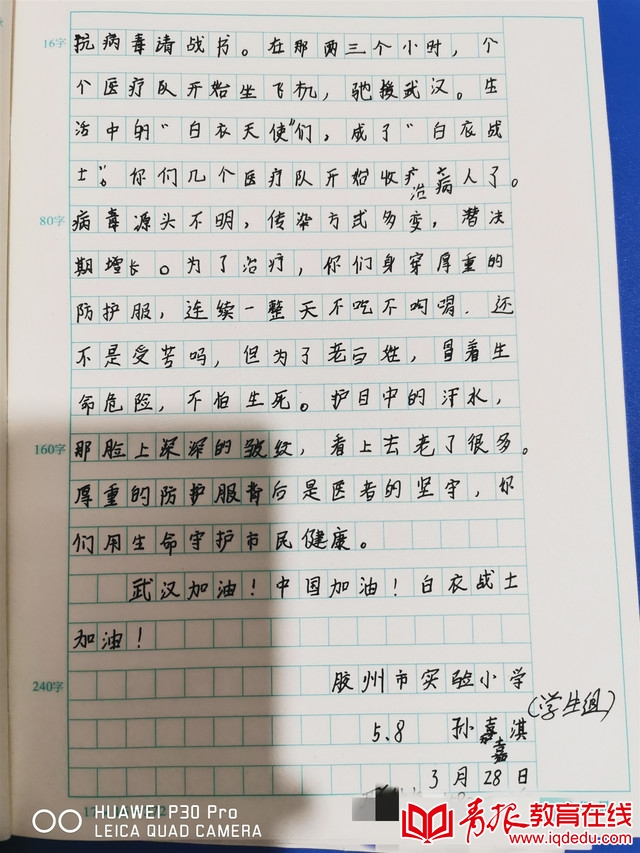 16字 抗病毒请战书。在那两三个小时，个
个医疗队开始坐飞机，驰援武汉。生
活中的“白衣天使”们，成了“白衣战
士”。你们几个医疗队开始收治病人了。
80字 病毒源头不明，传染方式多变，潜伏
期增长。为了治疗，你们身穿厚重的
防护服，连续一整天不吃不喝。还
不是受苦吗，但为了老百姓，冒着生
命危险，不怕生死。护目中的汗水，
160字 那脸上深深的皱纹，看上去老了很多。
厚重的防护服背后是医者的坚守，你
们用生命守护市民健康。
武汉加油！中国加油！白衣战士
加油！
240字 胶州市实验小学
(学生组)
5.8 孙嘉淇
3月28日
HUAWEI P30 Pro
LEICA QUAD CAMERA
青报教育在线
www.iqdedu.com